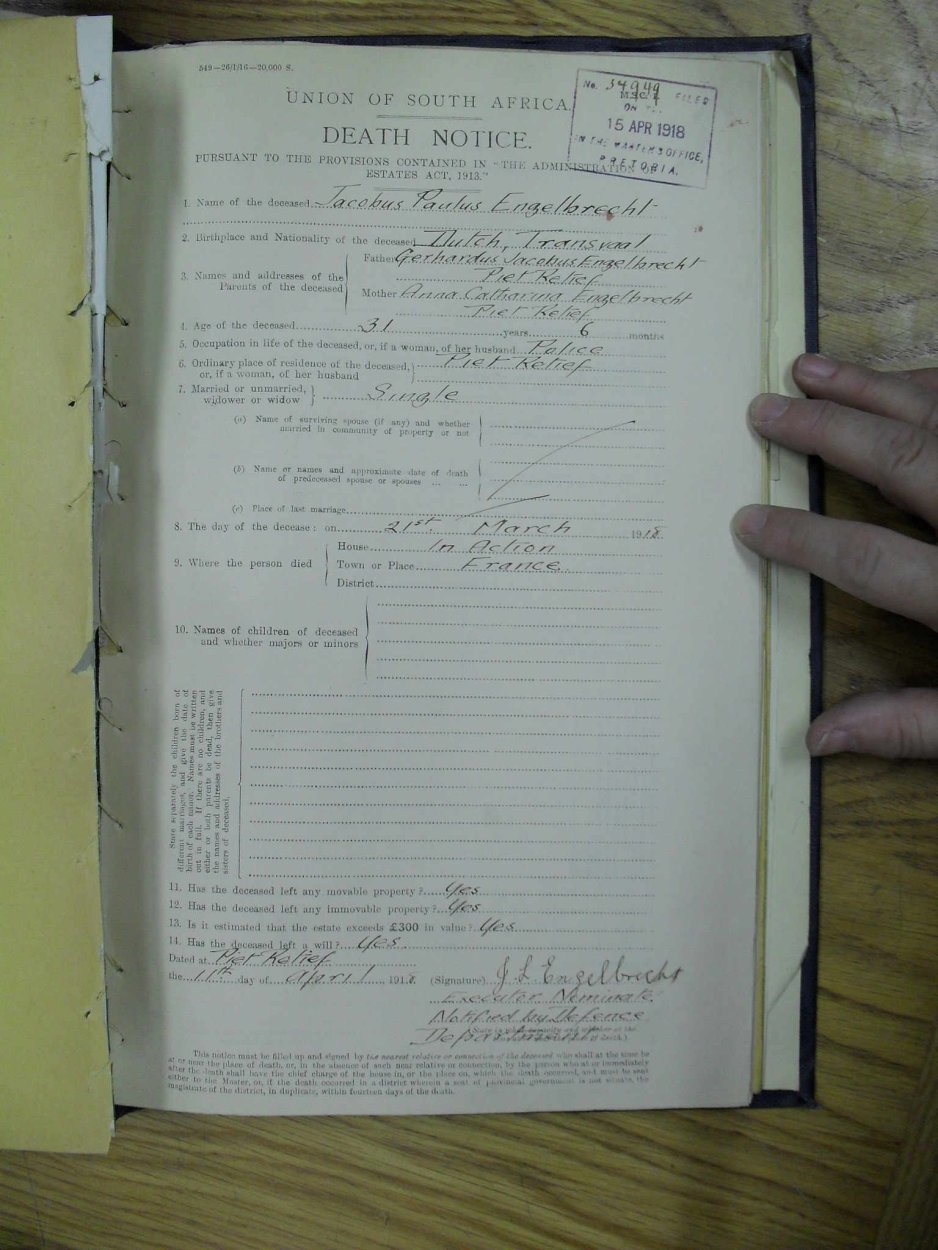 549—26/1/16—20,000 S.
No. 34949
M.S.C.
FILED
ON
15 APR 1918
IN THE MASTER'S OFFICE,
PRETORIA.
UNION OF SOUTH AFRICA.
DEATH NOTICE.
PURSUANT TO THE PROVISIONS CONTAINED IN "THE ADMINISTRATION OF
ESTATES ACT, 1913."
1. Name of the deceased Jacobus Paulus Engelbrecht
2. Birthplace and Nationality of the deceased Dutch, Transvaal
3. Names and addresses of the Parents of the deceased
Father Gerhardus Jacobus Engelbrecht
Piet Relief
Mother Anna Catharina Engelbrecht
Piet Relief
4. Age of the deceased 31 years 6 months
5. Occupation in life of the deceased, or, if a woman, of her husband Police
6. Ordinary place of residence of the deceased, Piet Relief
or, if a woman, of her husband
7. Married or unmarried, widower or widow Single
(a) Name of surviving spouse (if any) and whether
married in community of property or not
(b) Name or names and approximate date of death
of predeceased spouse or spouses ... ...
(c) Place of last marriage
8. The day of the decease: on 21st March 1918.
9. Where the person died
House In Action
Town or Place France.
District
10. Names of children of deceased
and whether majors or minors
State separately the children born of
different marriages, and give the date of
birth of each minor. Names must be written
out in full. If there are no children, and
either or both parents be dead, then give
the names and addresses of the brothers and
sisters of deceased.
11. Has the deceased left any movable property? Yes
12. Has the deceased left any immovable property? Yes
13. Is it estimated that the estate exceeds £300 in value? Yes
14. Has the deceased left a will? Yes
Dated at Piet Relief
the 11th day of April 1918.
(Signature) J L Engelbrecht
Executor Nominate.
Notified by Defence
Department
This notice must be filled up and signed by the nearest relative or connection of the deceased who shall at the time be
at or near the place of death, or, in the absence of such near relative or connection, by the person who at or immediately
after the death shall have the chief charge of the house in, or the place on, which the death occurred, and must be sent
either to the Master, or, if the death occurred in a district wherein a seat of provincial government is not situate, the
magistrate of the district, in duplicate, within fourteen days of the death.